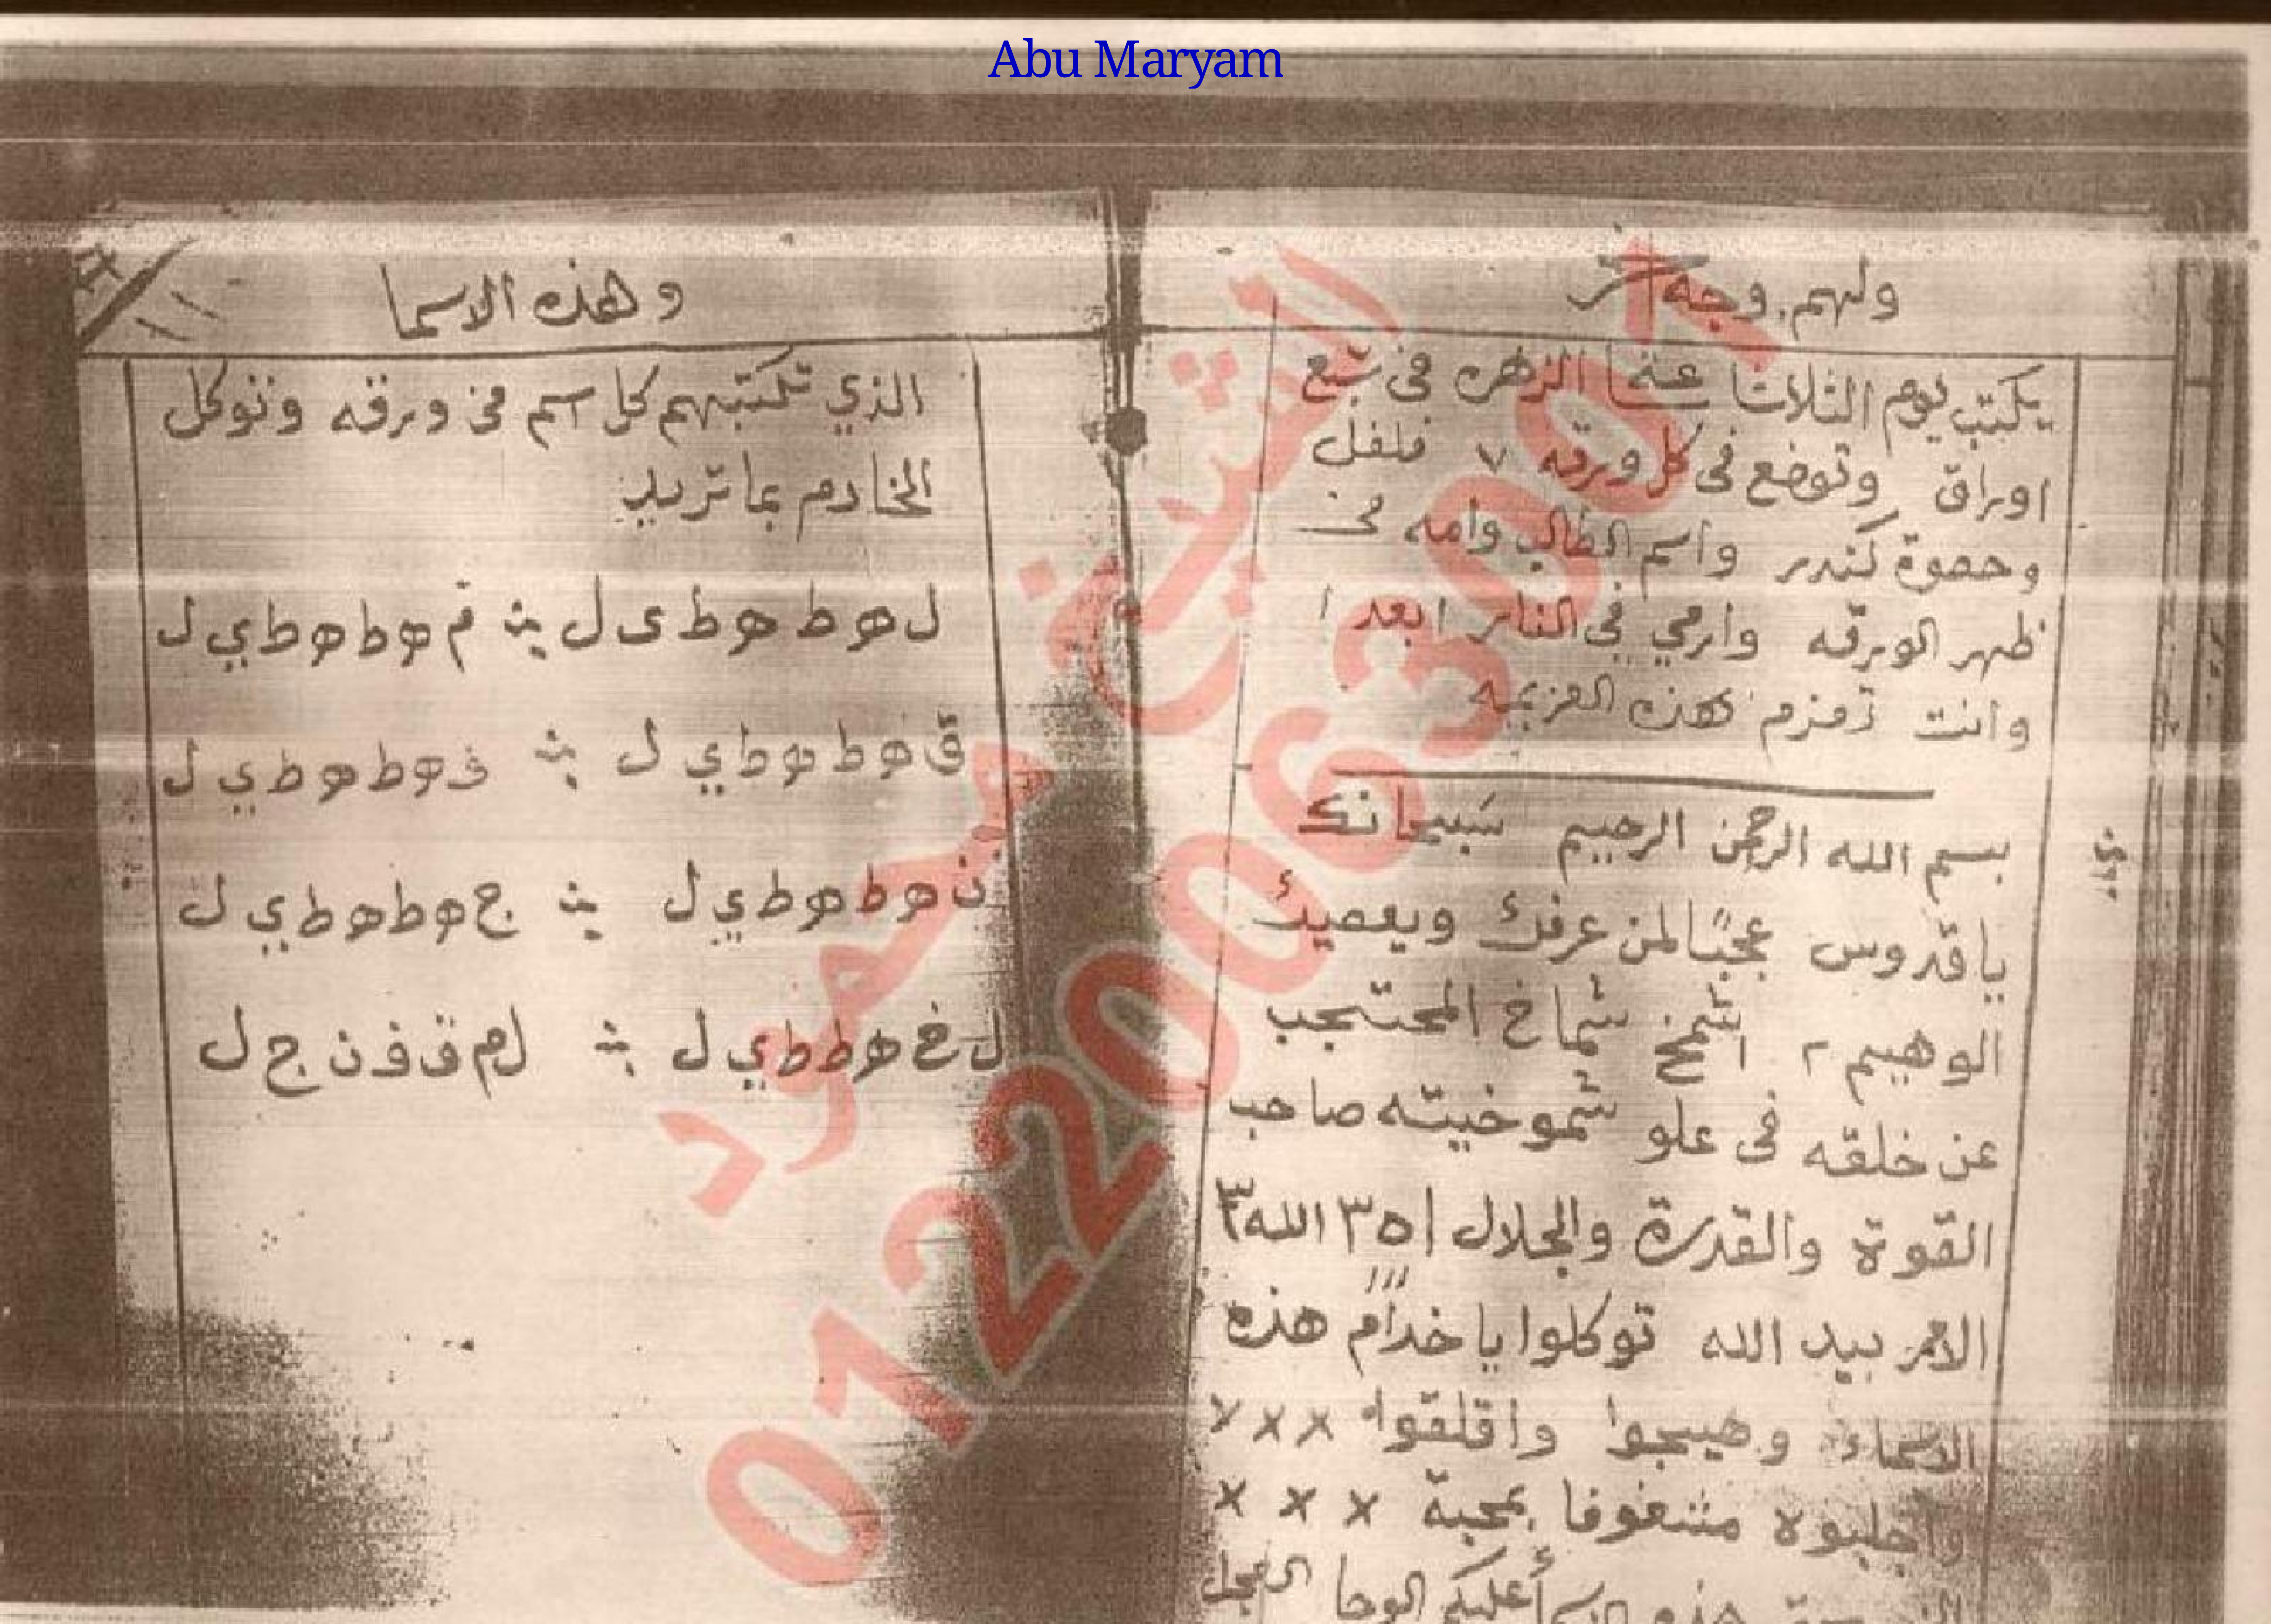 Abu Maryam
ولهم وجه آخر
يكتب يوم الثلاث عند الزهره فى سبع
اوراق وتوضع فى كل ورقه ٧ فلفل
وحصوة كندر واسم الطالب وامه فى
ظهر الورقه وارمي في النار ابعد ا
وانت تعزم بهذه العزيمه
بسم الله الرحمن الرحيم سبحانك
يا قدوس عجبًا لمن عرفك ويعصيك
الوهيم ٢ اشمخ شماخ المحتجب
عن خلقه فى علو شموخيته صاحب
القوة والقدرة والجلال اه ٣ الله ٣
الامر بيد الله توكلوا يا خدام هذه
الاسماء وهيجوا واقلقوا × × ×
واجلبوه مشغوفا بمحبة × × ×
هذه عليكم الوحا العجل
وهذه الاسما
الذي تكتبهم كل اسم فى ورقه وتوكل
الخادم بما تريد
ل هو ط هو ط ى ل م هو ط هو ط ي ل
ق هو ط هو ط ي ل ف هو ط هو ط ي ل
ن هو ط هو ط ي ل ج هو ط هو ط ي ل
ل خ هو ط ط ي ل ل م ق ف ن ج ل
الشيخ محمود